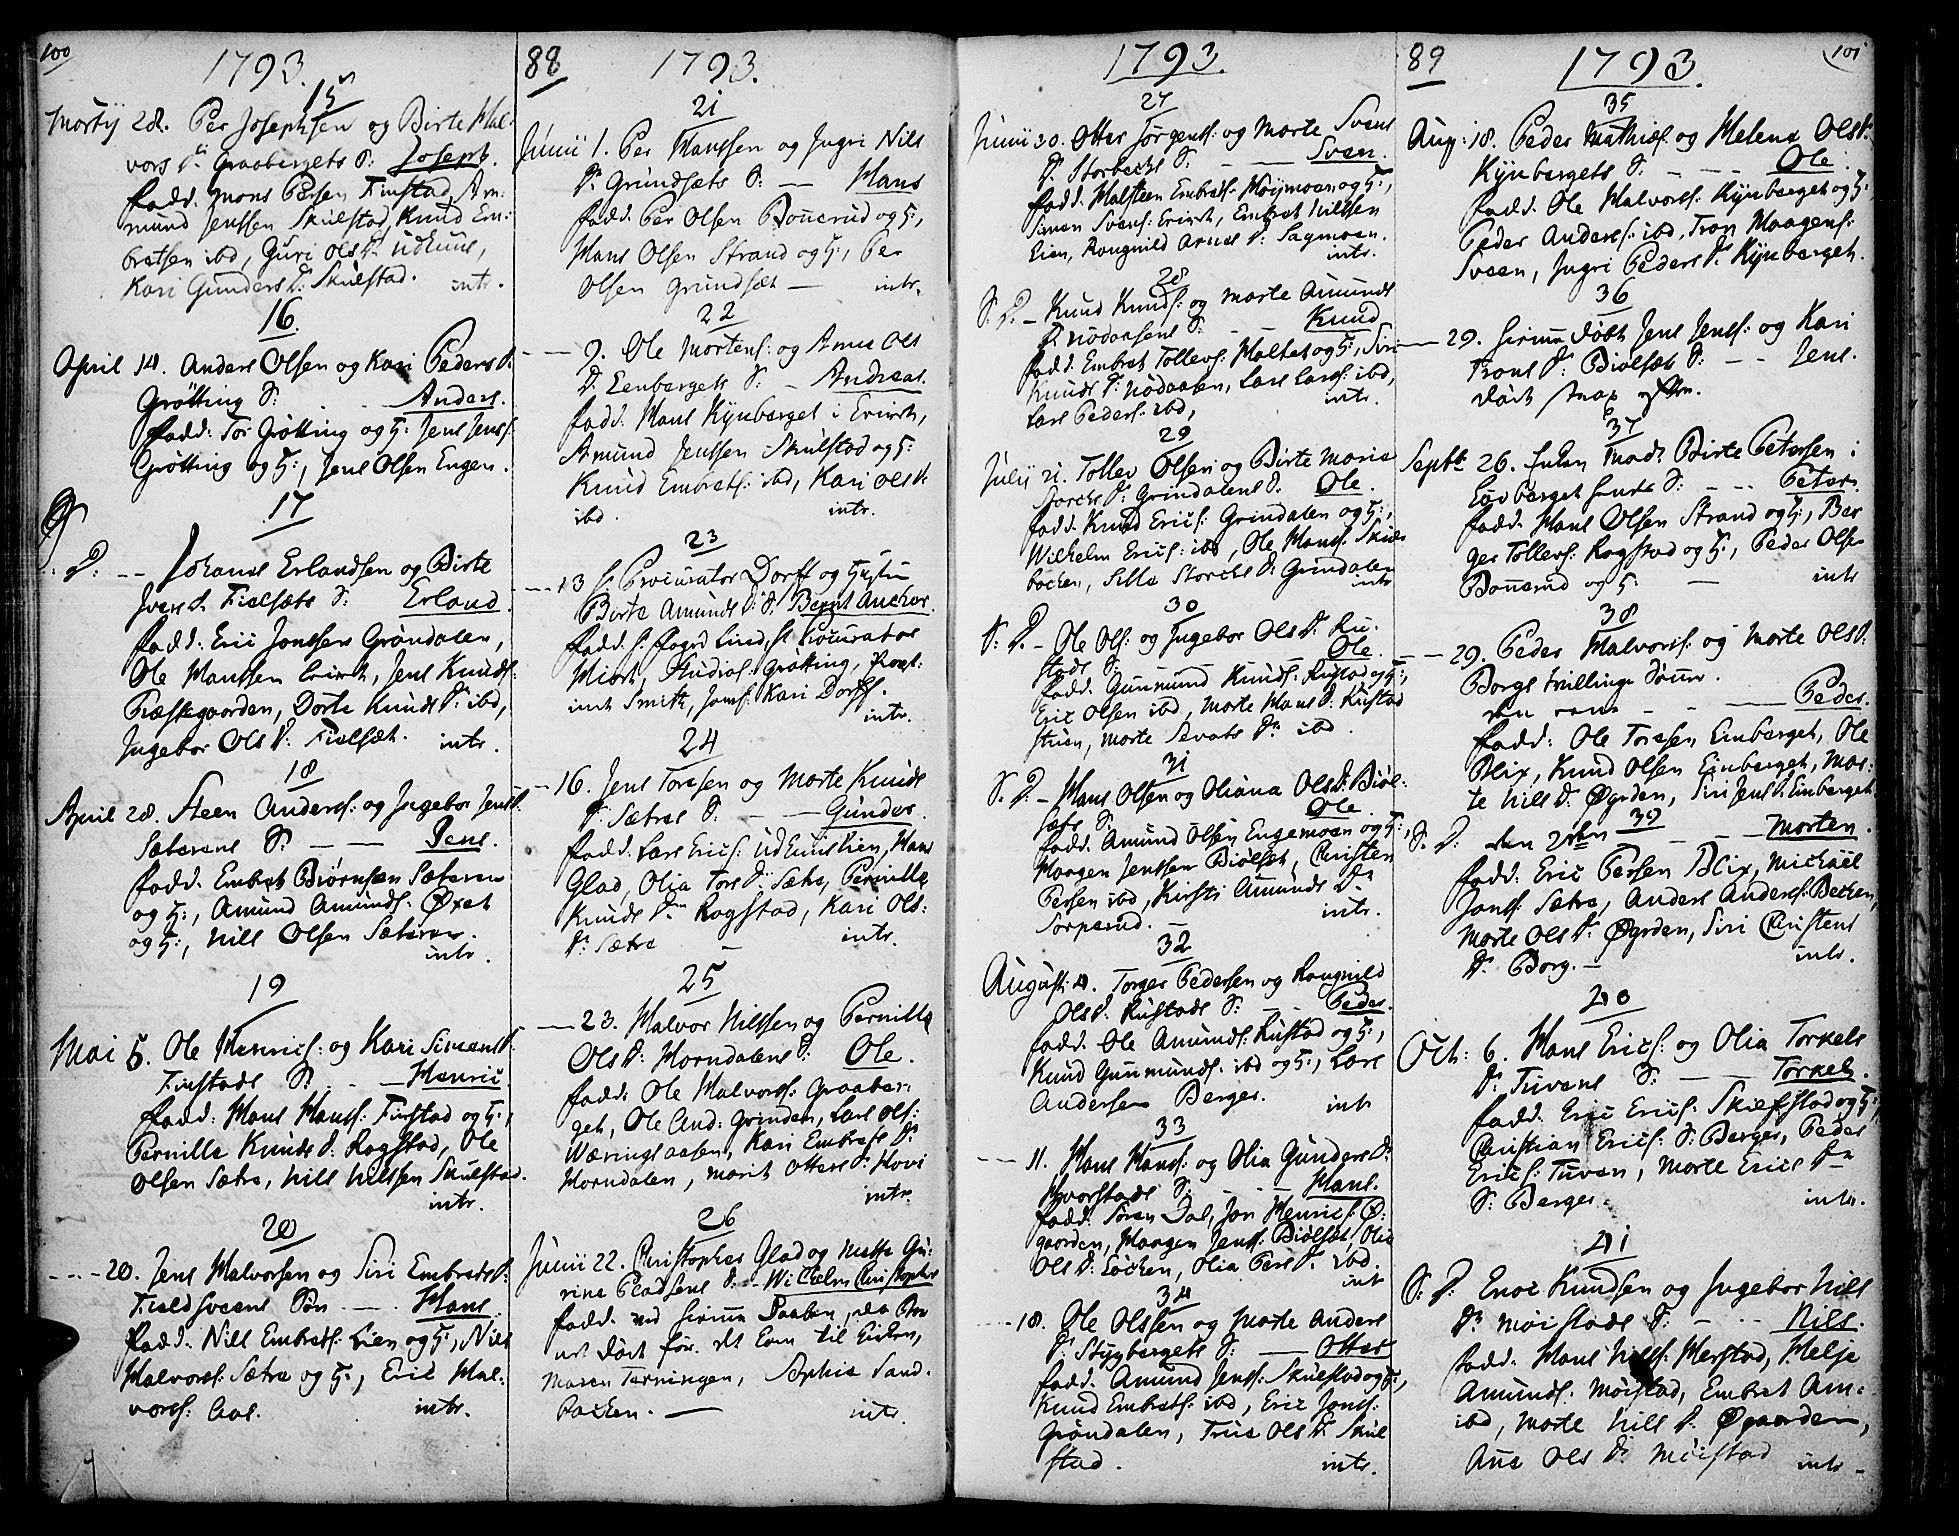 100
1793.
15
Martij 28. Per Josephsen og Birte Hal-
vors D: Graabergets S: Joseph.
fadd. Mons Persen Finstad, Am-
mund Jenssen Skulstad, Knud Em-
bretsen ibd, Guri Ols D. Udkuus,
Kari Gunders D: Skulstad. intr.
16.
April 14. Anders Olsen og Kari Peders D:
Grötting S: Anders.
fadd: Tor Grötting og H: Jens Jens:
Grötting og H:, Jens Olsen Engen.
17
S. D: -- Johanes Erlandsen og Birte
Ivers D. Fielsæts S: Erland.
fadd: Eric Jonssen Gröndalen,
Ole Hanssen Erirch, Jens Knuds:
Præstegaarden, Dorte Knuds D: ibd,
Ingebor Ols D: Fielsæt. intr.
18
April 28. Steen Anders: og Ingebor Jens D.
Sæterens S: -- Jens.
fadd. Embret Biørnsen Sæteren
og H:, Amund Amunds: Øxet
og H:, Nils Olsen Sæteren.
intr.
19
Mai 5. Ole Henrics: og Kari Simens D:
Finstads S: Henric.
fadd: Hans Hans: Finstad og H:,
Pernille Knuds D: Rogstad, Ole
Olsen Sætre, Nils Nilssen Skulstad.
intr.
20
---20. Jens Halvorsen og Siri Embrets D:
Fieldsveens Søn --. Hans.
fadd: Nils Embrets: Lien og H:, Nils
Halvors: Sætre og H:, Eric Hal-
vors: Aas. intr.
88
1793.
21
Junii 1. Per Hanssen og Ingri Nils
D: Grundsæts S: -- Hans
fadd. Per Olsen Bonerud og H:,
Hans Olsen Strand og H:, Per
Olsen Grundsæt -- intr.
22
--- 9. Ole Mortens: og Anne Ols
D: Eenbergets S: - Andreas.
fadd. Hans Kynberget i Erirch,
Amund Jenssen Skulstad og H:
Knud Embrets: ibd, Kari Ols D.
ibd. intr.
23
---13 H Procurator Dorff og Hustru
Birte Amunds D: S: Bernt Ancher.
fadd. H: Fogd Lind, H: Procurator
Miort, Andreas: Grötting,
Smith, Jomf: Kari Dorff.
intr.
24
-16. Jens Toresen og Marte Knuds
D: Sætres S: -- Gunder.
fadd. Lars Erics: Udkuuslien, Hans
Glad, Olia Tors D: Sætre, Pernille
Knuds D: Rogstad, Kari Ols:
D: Sætre - intr.
25
---23. Halvor Nilssen og Pernille
Ols D: Horndalens S: Ole.
fadd: Ole Halvors: Graaber-
get, Ole And: Grinden, Lars Ols:
Wæringsaasen, Kari Embrets D:
Horndalen, Marit Otters D: Hovi
intr.
26
Junii 22. Christopher Glad og Mette Gu-
rine Pladsens S: - Wilhelm Christopher
fadd. ved hiemme Daaben, da Bar
net døde før det kom til Kirken,
Maren Terningen, Sophie Sand.
Backen. -- intr.
1793.
27
Junii 30. Otter Jörgens: og Marte Svens
D: Storbecks S: -- Sven.
fadd: Halsteen Embrets: Möijmoen og H:,
Simen Svens: Erirch, Embret Nilssen
Lien, Rangnild Arnes D: Sagmoen.
intr.
28
S. D. - Knud Knuds: og Marte Amunds
D: Nödaasens S: -- Knud
fadd. Embret Tollevs: Holtet og H:, Siri
Knuds D: Nödaasen, Lars Lars: ibd,
Lars Peders: ibd, intr.
29
Julii 21. Tollev Olsen og Birte Marie
Storchs D: Grindalens S. Ole.
fadd. Knud Erics: Grindalen og H:,
Wilhelm Erics: ibd, Ole Hans: Skule
backen, Sille Storchs D: Grindalen
intr
30
S. D. - Ole Ols: og Ingebor Ols D: Ru-
stads S: -- Ole.
fadd: Gunmund Knuds: Rustad og H:,
Eric Olsen ibd, Marte Hans D: Rustad
stuen, Marte Sevats D: ibd.
31
S. D. - Hans Olsen og Oliana Ols D. Biöl-
sæts S: Ole
fadd. Amund Olsen Engemoen og H:,
Haagen Jenssen Biölset, Christen
Persen ibd, Kirsti Amunds D:
Torperud. intr.
32
Augusti 4. Torger Pedersen og Rangnild
Ols D: Rustads S: -- Peder.
fadd. Ole Amunds: Rustad og H:,
Knud Gunmunds: ibd og H:, Lars
Andersen Berger. intr
33
--- 11. Hans Hans: og Olia Gunders D:
Hvorstads S: -- Hans.
fadd: Sören Dal, Jon Henrics: Ø-
gaarden, Haagen Jens: Biölset, Olia
Ols D: Löcken, Olia Pers D: ibd.
intr
34
---18. Ole Olssen og Marte Anders
D: Stygbergets S: -- Otter
fadd. Amund Jens: Skulstad og H:,
Knud Embrets: ibd, Eric Jons:
Gröndalen, Trine Ols D: Skul
stad. intr.
89
1793.
101
35
Aug: 18. Peder Mathis: og Helene Ols D:
Kynbergets S: -- Ole.
fadd. Ole Halvors: Kynberget og H:
Peder Anders: ibd, Tron Haagens:
Sveen, Ingri Peders D: Kynberget.
36
--- 29. hiemme døbt Jens Jens: og Kari
Trons D: Biölsæt S: -- Jens.
død strax
37
Septbr 26. Enken Mad: Birte Petersen i
Løvberget hendes S: -- Peter.
fadd. Hans Olsen Strand og H:, Ber
ger Tollevs: Rogstad og H:, Peder Ols
Bonerud og H: -- intr
38
--- 29. Peder Halvors: og Marte Ols D:
Borgs tvillinge Sönner.
den eene -- Peder.
fadd: Ole Toresen Eenberget, Ole
Blix, Knud Olsen Einberget, Mar-
te Nils D. Øgrden, Siri Jens D. Einberget
39
S. D: den 2den -- Morten.
fadd: Eric Persen Blix, Michael
Jons: Sætre, Anders Anders: Becken,
Marte Ols D: Øgrden, Siri Christens
D: Borg. - intr.
40
Oct: 6. Hans Erics: og Olia Torkels
D: Tuvens S: -- Torkel.
fadd: Eric Erics: Skiefstad og H:,
Christian Erics: S: Berger, Peder
Erics: Tuven, Marte Erics D:
S: Berger. intr.
41
S. D: Enoc Knudsen og Ingebor Nils
D: Möistads S: -- Nils.
fadd. Hans Nils: Herstad, Helje
Amunds: Möistad, Embret Am-
ibd, Marte Nils D: Øgaarden,
Ane Ols D: Möistad intr -